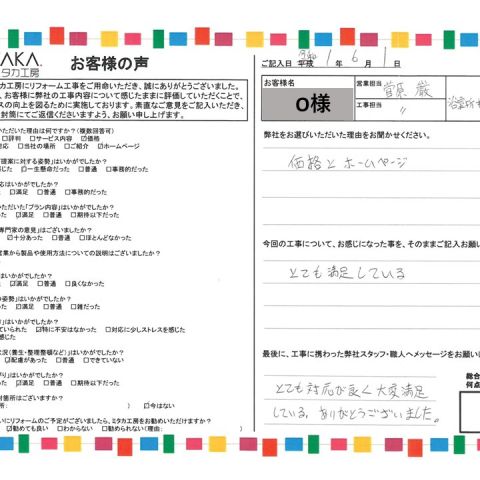 AKA.
タカ工房
お客様の声
タカ工房にリフォーム工事をご用命いただき、誠にありがとうございました。
客様に弊社の工事内容について感じたままに評価していただくことで、
スの向上を図るために実施しております。素直なご意見をご記入いただき、
封筒にてご返信くださいますよう、お願い申し上げます。
いただいた理由は何ですか?(複数回答可)
□評判 □サービス内容 ☑価格
対応 □当社の場所 □ご紹介 ☑ホームページ
「提案に対する姿勢」はいかがでしたか?
感じた ☑一生懸命だった □普通 □事務的だった
応はいかがでしたか?
た □満足 □普通 □事務的だった
いただいた「プラン内容」はいかがでしたか?
た ☑満足 □普通 □期待以下だった
専門家の意見」はございましたか?
☑十分あった □普通 □ほとんどなかった
営業から製品や使用方法についての説明はございましたか?
はいかがでしたか?
た ☑満足 □普通 □良くなかった
の姿勢」はいかがでしたか?
た ☑満足 □普通 □雑だった
」はいかがでしたか?
ていられた ☑特に不安はなかった □対応に少しストレスを感じた
感じた
状況(養生・整理整頓など)」はいかがでしたか?
☑配慮があった □普通 □できていない
」はいかがでしたか?
た ☑満足 □普通 □期待以下だった
対箇所はございますか?
所: ) ☑今はない
いにリフォームのご予定がございましたら、ミタカ工房をお勧めいただけますか?
☑勧めても良い □わからない □勧められない(理由: )
ご記入日 平成 令和 1 年 6 月 1 日
お客様名
O様
営業担当 菅原 巌
工事担当 〃
弊社をお選びいただいた理由をお聞かせください。
価格とホームページ
今回の工事について、お感じになった事を、そのままご記入お願い
とても満足している
最後に、工事に携わった弊社スタッフ・職人へメッセージをお願いし
とても対応が良く大変満足
している。ありがとうございました。
総合
何点